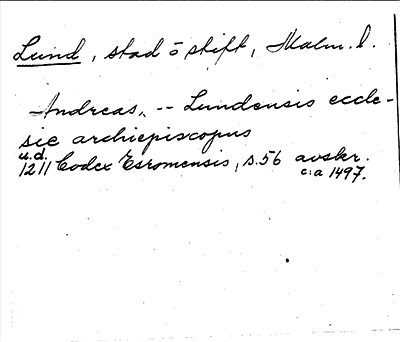 Lund, stad o stift, Malm. l.
Andreas, -- Lundensis eccle-
sie archiepiscopus
u.d.
1211 Codex Esromensis, s. 56 avskr.
c:a 1497.